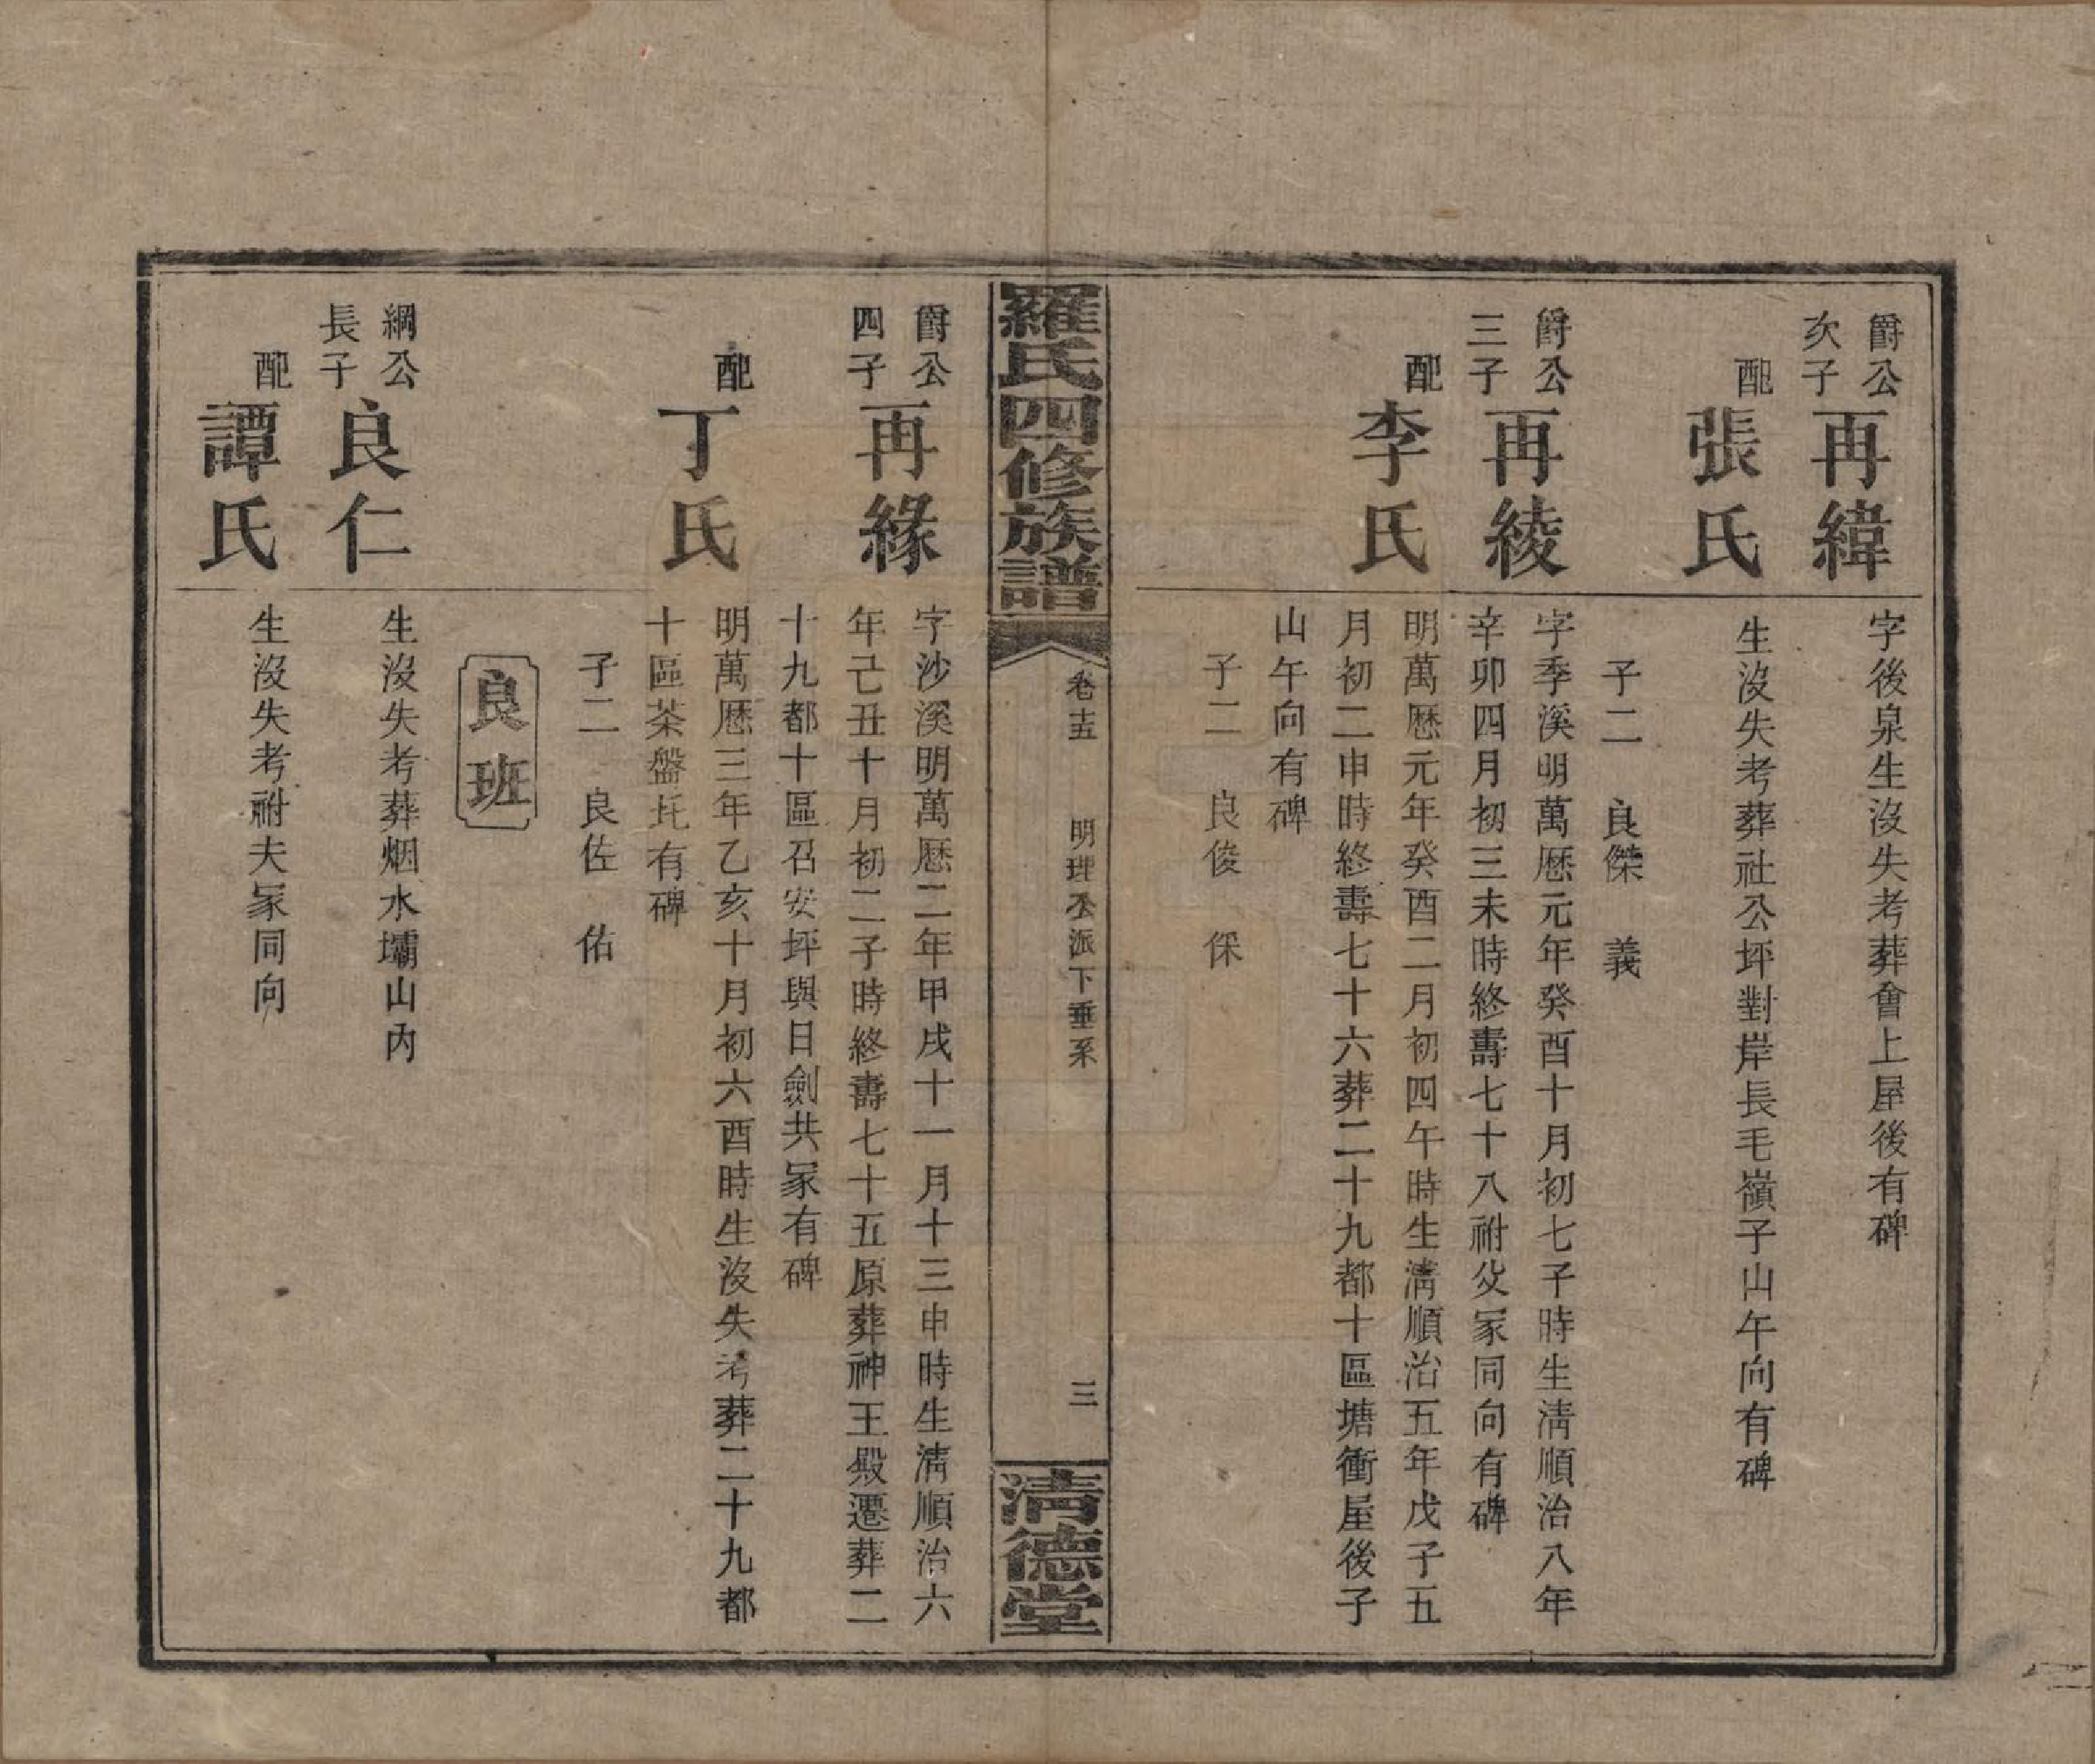 爵公
次子
再緯
字後泉生沒失考葬會上屋後有碑
配
張氏
生沒失考葬社公坪對岸長毛嶺子山午向有碑
子二　良傑　義
爵公
三子
再綾
字季溪明萬厯元年癸酉十月初七子時生淸順治八年
辛卯四月初三未時終壽七十八祔父冢同向有碑
配
李氏
明萬厯元年癸酉二月初四午時生淸順治五年戊子五
月初二申時終壽七十六葬二十九都十區塘衝屋後子
山午向有碑
子二　良俊　保
羅氏四修族譜
卷十五
明理公派下垂系
三
淸德堂
爵公
四子
再緣
字沙溪明萬厯二年甲戌十一月十三申時生淸順治六
年己丑十月初二子時終壽七十五原葬神王殿遷葬二
十九都十區召安坪與日劍共冢有碑
配
丁氏
明萬厯三年乙亥十月初六酉時生沒失考葬二十九都
十區茶盤圫有碑
子二　良佐　佑
良班
綱公
長子
良仁
生沒失考葬烟水壩山內
配
譚氏
生沒失考祔夫冢同向